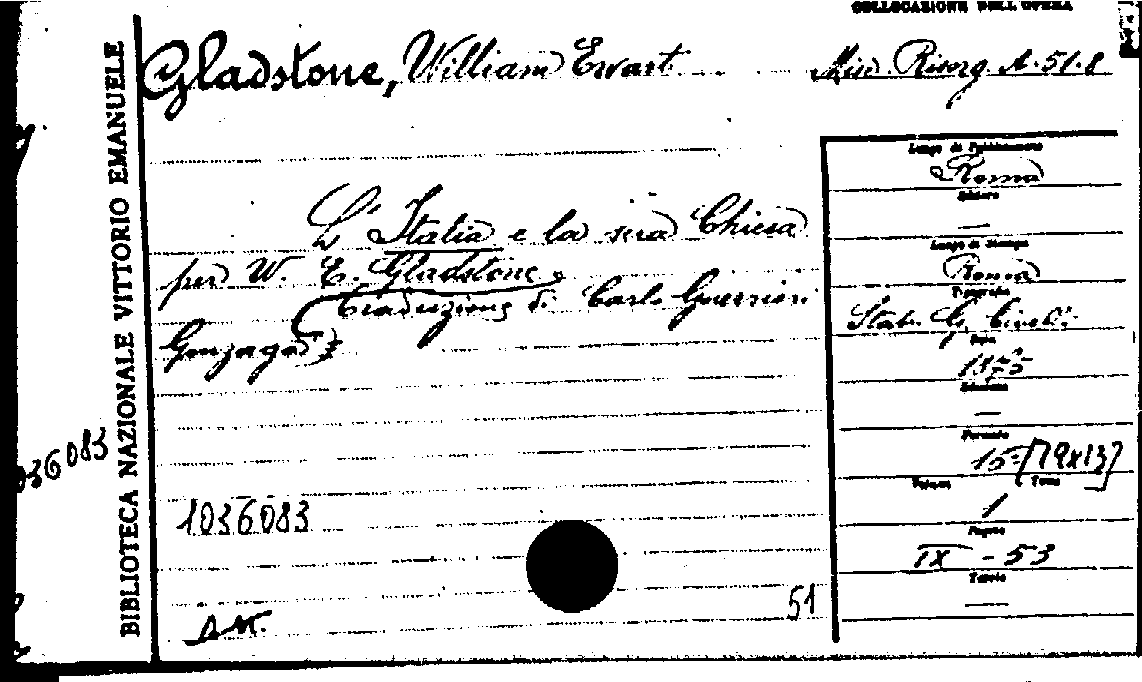 COLLOCAZIONE DELL'OPERA
Gladstone, William Ewart
Misc. Risorg. A. 51. 8
BIBLIOTECA NAZIONALE VITTORIO EMANUELE
L'Italia e la sua Chiesa
per W. E. Gladstone
Traduzione di Carlo Guerrieri
Gonzaga
036083
1036083
51
Luogo di Pubblicazione
Roma
Editore
—
Luogo di Stampa
Roma
Tipografia
Stab. G. Civelli
Data
1875
Edizione
—
Formato
[19x13]
Volume Tomo
1
Pagine
IX - 53
Tavole
—